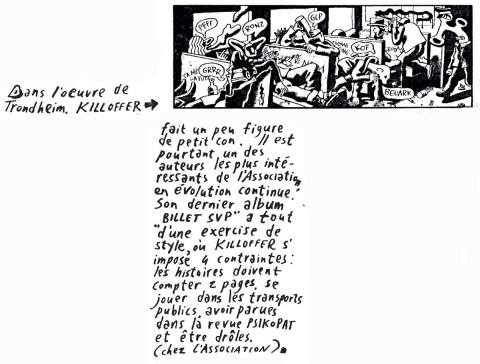 PFFF
RONZ
GLP
KOF
GRRR
BEUARK
Dans l'oeuvre de
Trondheim, KILLOFFER
fait un peu figure
de petit con. Il est
pourtant un des
auteurs les plus inté-
ressants de l'Association
en évolution continue.
Son dernier album
"BILLET SVP" a tout
d'une exercise de
style, où KILLOFFER s'
impose 4 contraintes:
les histoires doivent
compter 2 pages, se
jouer dans les transports
publics, avoir parues
dans la revue PSIKOPAT
et être drôles.
(chez L'ASSOCIATION).